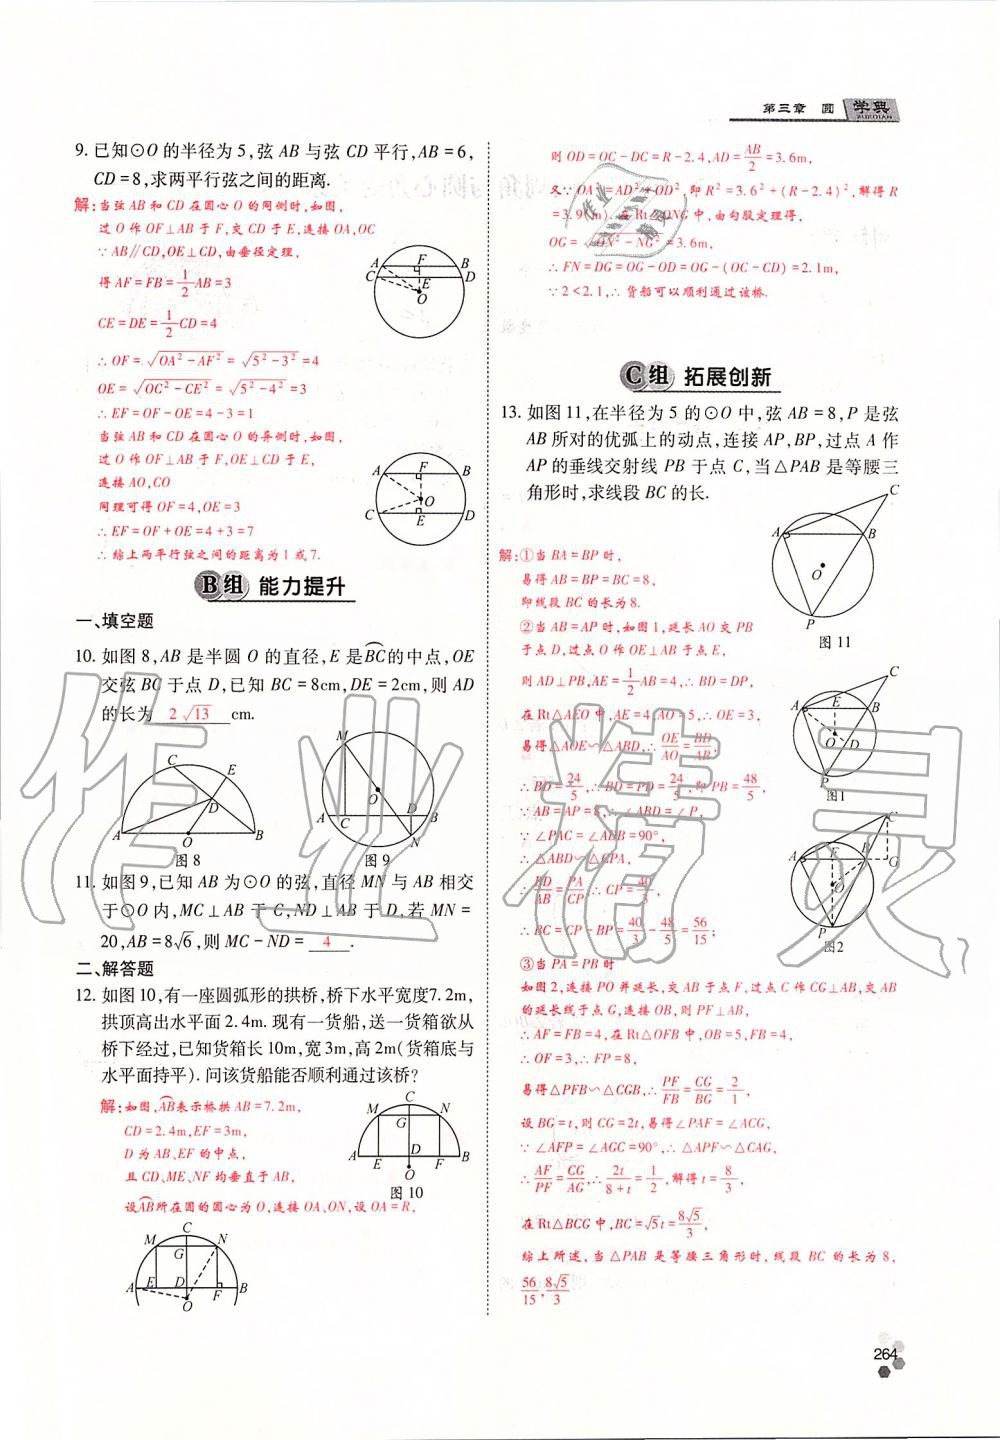 第三章 圆 学典
XUEDIAN
9. 已知⊙O 的半径为 5,弦 AB 与弦 CD 平行,AB=6,
CD=8,求两平行弦之间的距离.
解:当弦 AB 和 CD 在圆心 O 的同侧时,如图,
过 O 作 OF⊥AB 于 F,交 CD 于 E,连接 OA,OC
∵AB∥CD,OE⊥CD,由垂径定理,
得 AF=FB=1/2 AB=3
CE=DE=1/2 CD=4
∴OF=√(OA²-AF²)=√(5²-3²)=4
OE=√(OC²-CE²)=√(5²-4²)=3
∴EF=OF-OE=4-3=1
当弦 AB 和 CD 在圆心 O 的异侧时,如图,
过 O 作 OF⊥AB 于 F,OE⊥CD 于 E,
连接 AO,CO
同理可得 OF=4,OE=3
∴EF=OF+OE=4+3=7
∴综上两平行弦之间的距离为 1 或 7.
A F B
C E D
O
A F B
O
C E D
B组 能力提升
一、填空题
10. 如图 8,AB 是半圆 O 的直径,E 是BC的中点,OE
交弦 BC 于点 D,已知 BC=8cm,DE=2cm,则 AD
的长为 2√13 cm.
C E D A O B
图 8
M O A C D B N
图 9
11. 如图 9,已知 AB 为⊙O 的弦,直径 MN 与 AB 相交
于⊙O 内,MC⊥AB 于 C,ND⊥AB 于 D,若 MN=
20,AB=8√6,则 MC-ND= 4 .
二、解答题
12. 如图 10,有一座圆弧形的拱桥,桥下水平宽度7.2m,
拱顶高出水平面 2.4m. 现有一货船,送一货箱欲从
桥下经过,已知货箱长 10m,宽 3m,高 2m(货箱底与
水平面持平). 问该货船能否顺利通过该桥?
解:如图,AB表示桥拱 AB=7.2m,
CD=2.4m,EF=3m,
D 为 AB、EF 的中点,
且 CD、ME、NF 均垂直于 AB,
设AB所在圆的圆心为 O,连接 OA、ON,设 OA=R,
C M N G A E D F B O
图 10
C M N G A E D F B O
则 OD=OC-DC=R-2.4,AD=AB/2=3.6m,
又∵OA²=AD²+OD²,即 R²=3.6²+(R-2.4)²,解得 R
=3.9(m). 在 Rt△ONG 中,由勾股定理得,
OG=√(ON²-NG²)=3.6m,
∴FN=DG=OG-OD=OG-(OC-CD)=2.1m,
∵2<2.1,∴货船可以顺利通过该桥.
C组 拓展创新
13. 如图 11,在半径为 5 的⊙O 中,弦 AB=8,P 是弦
AB 所对的优弧上的动点,连接 AP,BP,过点 A 作
AP 的垂线交射线 PB 于点 C,当△PAB 是等腰三
角形时,求线段 BC 的长.
C A B O P
图 11
解:①当 BA=BP 时,
易得 AB=BP=BC=8,
即线段 BC 的长为 8.
②当 AB=AP 时,如图 1,延长 AO 交 PB
于点 D,过点 O 作 OE⊥AB 于点 E,
则 AD⊥PB,AE=1/2 AB=4,∴BD=DP,
在 Rt△AEO 中,AE=4,AO=5,∴OE=3,
易得△AOE∽△ABD,∴OE/AO=BD/AB,
∴BD=24/5,∴BD=PD=24/5,即 PB=48/5,
∵AB=AP=8,∴∠ABD=∠P,
∵∠PAC=∠ADB=90°,
∴△ABD∽△CPA,
∴BD/AB=PA/CP,∴CP=40/3,
∴BC=CP-BP=40/3-48/5=56/15;
C A E B O D P
图1
C A F B G O P
图2
③当 PA=PB 时
如图 2,连接 PO 并延长,交 AB 于点 F,过点 C 作 CG⊥AB,交 AB
的延长线于点 G,连接 OB,则 PF⊥AB,
∴AF=FB=4,在 Rt△OFB 中,OB=5,FB=4,
∴OF=3,∴FP=8,
易得△PFB∽△CGB,∴PF/FB=CG/BG=2/1,
设 BG=t,则 CG=2t,易得∠PAF=∠ACG,
∵∠AFP=∠AGC=90°,∴△APF∽△CAG,
∴AF/PF=CG/AG,∴2t/(8+t)=1/2,解得 t=8/3,
在 Rt△BCG 中,BC=√5t=8√5/3,
综上所述,当△PAB 是等腰三角形时,线段 BC 的长为 8,
56/15,8√5/3
264
作业精灵
作业
精灵